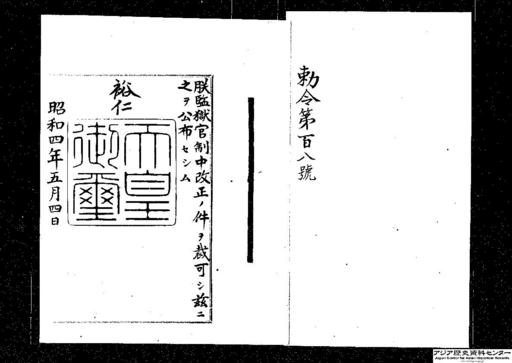 勅令第百八號
朕監獄官制中改正ノ件ヲ裁可シ茲ニ
之ヲ公布セシム
裕仁
天皇
御璽
昭和四年五月四日
アジア歴史資料センター
Japan Center for Asian Historical Records